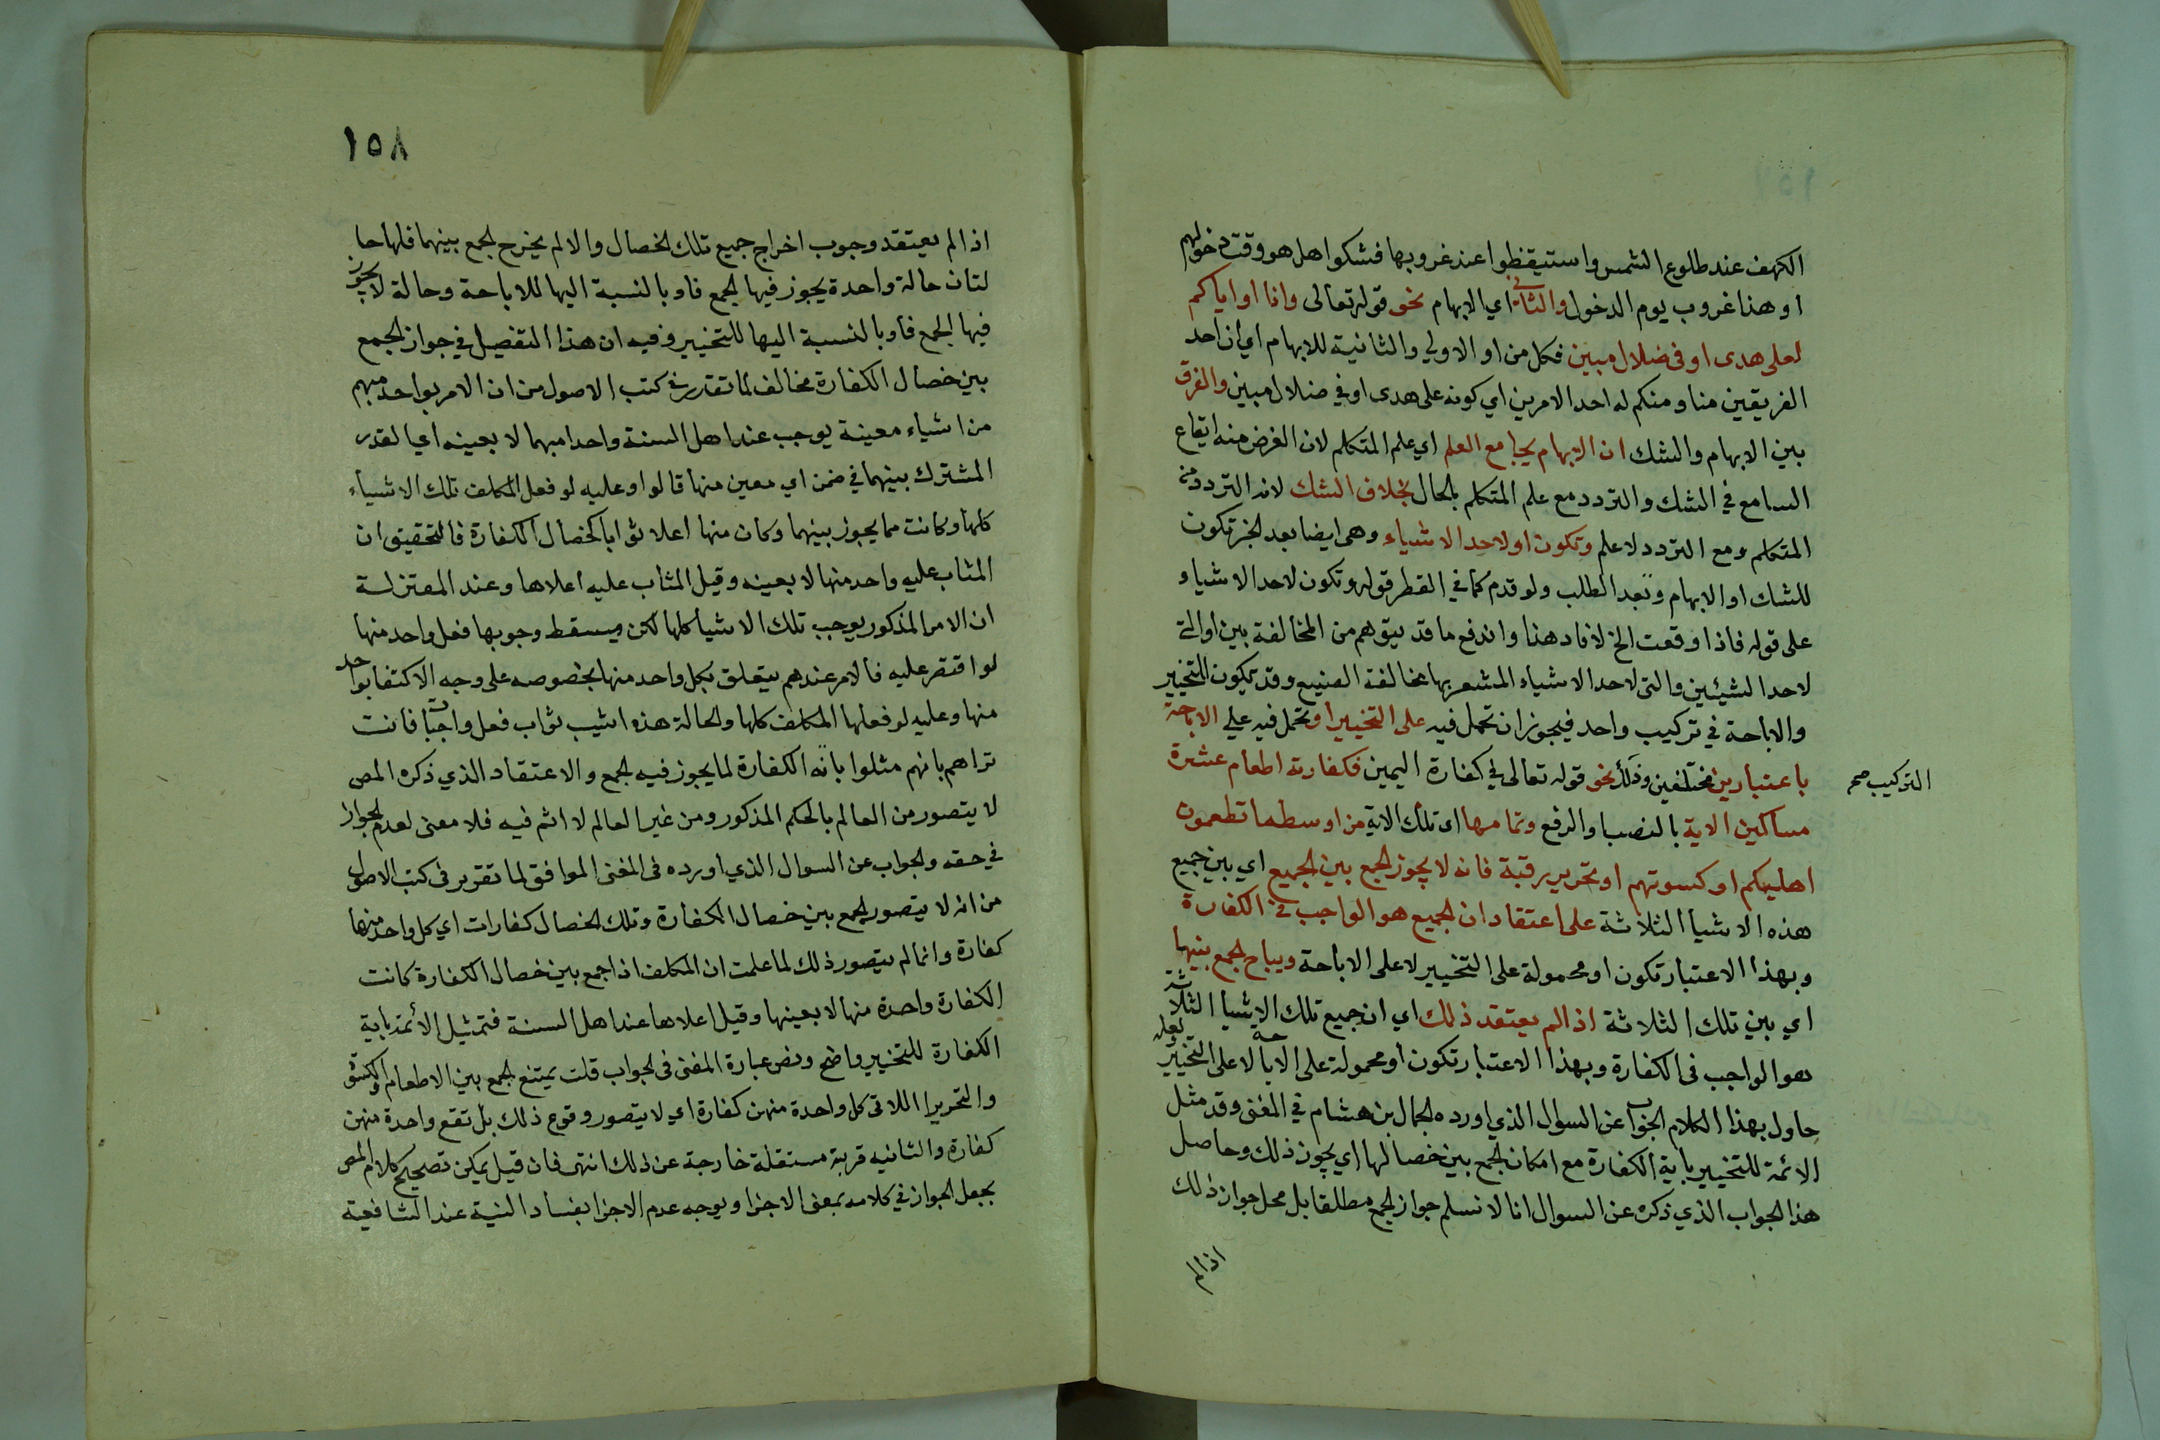 الكهف عند طلوع الشمس واستيقظوا عند غروبها فشكوا هل هو وقت دخولهم
او هذا غروب يوم الدخول والثاني اي الابهام نحو قوله تعالى وانا او اياكم
لعلى هدى او في ضلال مبين فكل من او الاولي والثانية للابهام اي ان احد
الفريقين منا ومنكم له احد الامرين اي كونه على هدى او في ضلال مبين والفرق
بين الابهام والشك ان الابهام يجامع العلم اي علم المتكلم لان الغرض منه ايقاع
السامع في الشك والتردد مع علم المتكلم بالحال بخلاف الشك لانه التردد من
المتكلم ومع التردد لا علم وتكون او لاحد الاشياء وهى ايضا بعد الخبر تكون
للشك او الابهام وبعد الطلب ولو قدم كما في القطر قوله وتكون لاحد الاشياء
على قوله فاذا وقعت الخ لافاد هذا واندفع ما قد يتوهم من المخالفة بين او التي
لاحد الشيئين والتى لاحد الاشياء المشعر بها مخالفة الصنيع وقد تكون التخيير
والاباحة في تركيب واحد فيجوز ان تحمل فيه على التخيير او تحمل فيه علي الاباحة
باعتبارين مختلفين وذلك نحو قوله تعالى في كفارة اليمين فكفارته اطعام عشرة
التركيب صح
مساكين الاية بالنصب والرفع وتمامها اى تلك الاية من اوسط ما تطعمون
اهليكم او كسوتهم او تحرير رقبة فانه لا يجوز الجمع بين الجميع اي بين جميع
هذه الاشيا الثلاثة على اعتقاد ان الجميع هو الواجب في الكفارة
وبهذا الاعتبار تكون او محمولة على التخيير لا على الاباحة ويباح الجمع بينها
اي بين تلك الثلاثة اذا لم يعتقد ذلك اي ان جميع تلك الاشيا الثلاثة
هو الواجب فى الكفارة وبهذا الاعتبار تكون او محمولة على الاباحة لا على التخيير
حاول بهذا الكلام الجواب عن السوال الذي اورده الجمال بن هشام في المغنى وقد مثل
الائمة للتخيير باية الكفارة مع امكان الجمع بين خصالها اي يجوز ذلك وحاصل
هذا الجواب الذي ذكره عن السوال انا لا نسلم جواز الجمع مطلقا بل محل جواز ذلك
اذا لم
١٥٨
اذا لم يعتقد وجوب اخراج جميع تلك الخصال والا لم يخرج الجمع بينهما فلها حا
لتان حالة واحدة يجوز فيها الجمع فاو بالنسبة اليها للاباحة وحالة لا يجوز
فيها الجمع فاو بالنسبة اليها للتخيير وفيه ان هذا التفصيل في جواز الجمع
بين خصال الكفارة مخالف لما تقرر في كتب الاصول من ان الامر بواحد مبهم
من اشياء معينة يوجب عند اهل السنة واحدا مبهما لا بعينه اي القدر
المشترك بينهما في ضمن اي معين منها قالوا وعليه لو فعل المكلف تلك الاشياء
كلها وكانت مما يجوز بينهما وكان منها اعلا ثوابا كخصال الكفارة فالتحقيق ان
المثاب عليه واحد منها لا بعينه وقيل المثاب عليه اعلاها وعند المعتزلة
ان الامر المذكور يوجب تلك الاشيا كلها لكن ويسقط وجوبها فعل واحد منها
لو اقتصر عليه فالامر عندهم يتعلق بكل واحد منها بخصوصه على وجه الاكتفا بواحد
منها وعليه لو فعلها المكلف كلها والحالة هذه اثيب ثواب فعل واجبات فانت
تراهم بانهم مثلوا بانه الكفارة لما يجوز فيه الجمع والاعتقاد الذي ذكره المص
لا يتصور من العالم بالحكم المذكور ومن غير العالم لا اثم فيه فلا معنى لعدم الجواز
في حقه والجواب عن السوال الذي اورده فى المغنى الموافق لما تقرر فى كتب الاصول
من انه لا يتصور الجمع بين خصال الكفارة وتلك الخصال كفارات اي كل واحد منها
كفارة وانما لم يتصور ذلك لما علمت ان المكلف اذا جمع بين خصال الكفارة كانت
الكفارة واحدة منها لا بعينها وقيل اعلاها عند اهل السنة فتمثيل الائمة باية
الكفارة للتخيير واضح ونص عبارة المغنى فى الجواب قلت يمتنع الجمع بين الاطعام والكسوة
والتحرير اللاتى كل واحدة منهن كفارة اي لا يتصور وقوع ذلك بل تقع واحدة منهن
كفارة والثانيه قربة مستقلة خارجة عن ذلك انتهى فان قيل يمكن تصحيح كلام المص
بجعل الجواز في كلامه بمعنى الاجزا ويوجه عدم الاجزا بفساد النية عند الشافعية